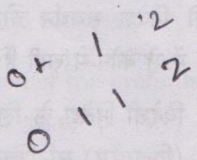 0 + 1 · 2
0 1 1 2